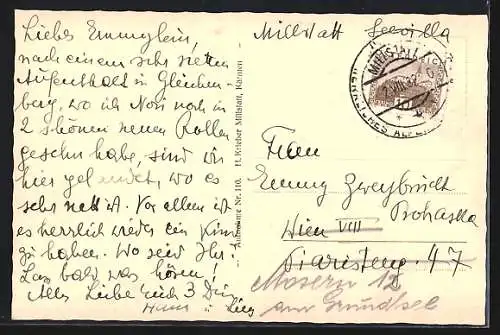 Liebes Emmylein!
nach einem sehr netten
Aufenthalt in Gleichen-
berg, wo ich Nosi noch in
2 schönen neuen Rollen
gesehn habe, sind wir
hier gelandet, wo es
sehr nett ist. Vor allem ist
es herrlich wieder ein
zu haben. Wo seid Ihr?
Lass bald was hören!
Alles Liebe Euch 3 Dein
Hans u
Aufnahme Nr. 110. H. Knieber Millstatt, Kärnten
Millstatt Seevilla
MILLSTATT
Frau
Emmy Zweybrück
Prohaska
Wien VIII
Piaristeng. 47
Mosern 12
am Grundlsee